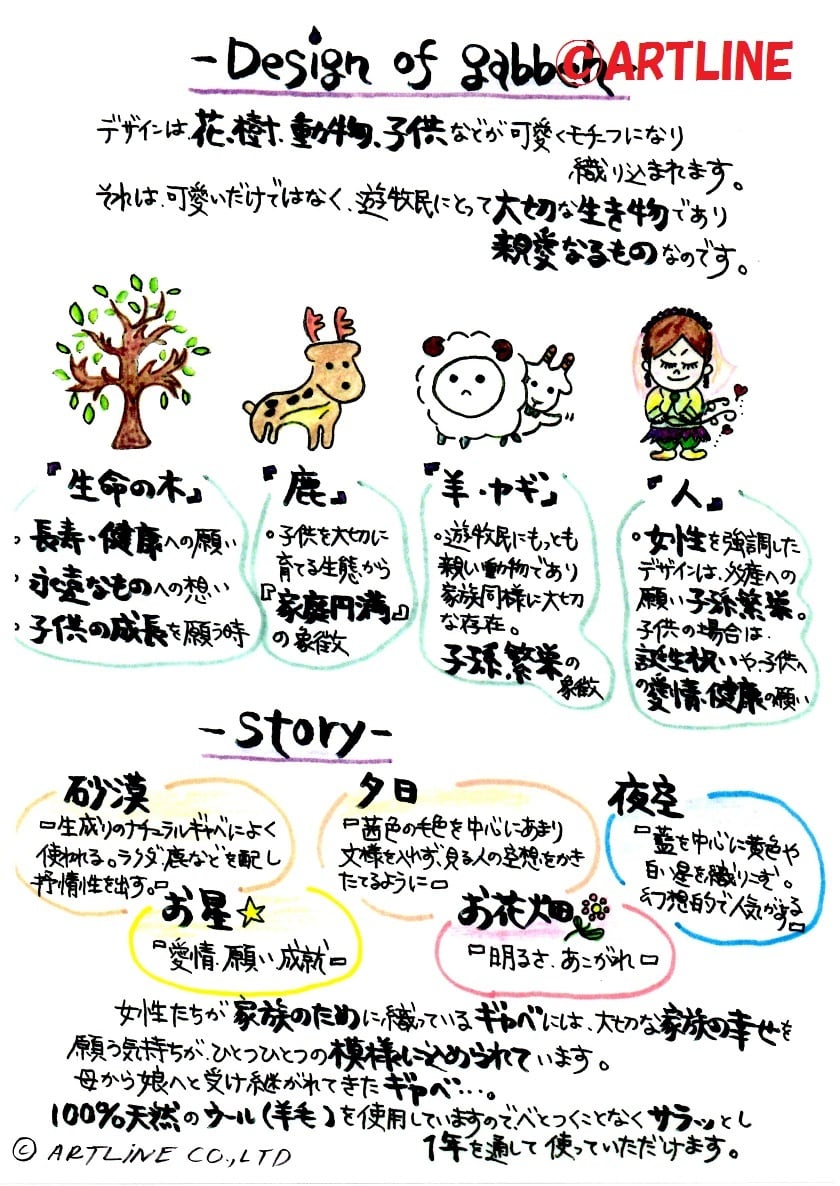 -Design of gabbeh-
©ARTLINE
デザインは、花、樹、動物、子供などが可愛くモチーフになり
織り込まれます。
それは、可愛いだけではなく、遊牧民にとって大切な生き物であり
親愛なるものなのです。
『生命の木』
。長寿・健康への願い
。永遠なものへの想い
。子供の成長を願う時
『鹿』
。子供を大切に
育てる生態から
『家庭円満』
の象徴
『羊・ヤギ』
。遊牧民にもっとも
親しい動物であり
家族同様に大切
な存在。
子孫繁栄の
象徴
『人』
。女性を強調した
デザインは、多産への
願い子孫繁栄。
子供の場合は、
誕生祝いや、子供へ
の愛情、健康の願い
-Story-
砂漠
『生成りのナチュラルギャベによく
使われる。ラクダ、鹿などを配し
抒情性を出す。』
夕日
『茜色の毛色を中心にあまり
文様を入れず、見る人の空想をかき
たてるように』
夜空
『藍を中心に黄色や
白い星を織りこむ。
幻想的で人気がある』
お星
『愛情、願い、成就』
お花畑
『明るさ、あこがれ』
女性たちが家族のために織っているギャベには、大切な家族の幸せを
願う気持ちが、ひとつひとつの模様に込められています。
母から娘へと受け継がれてきたギャベ…。
100%天然のウール(羊毛)を使用していますのでべとつくことなくサラッとし
1年を通して使っていただけます。
© ARTLINE CO.,LTD